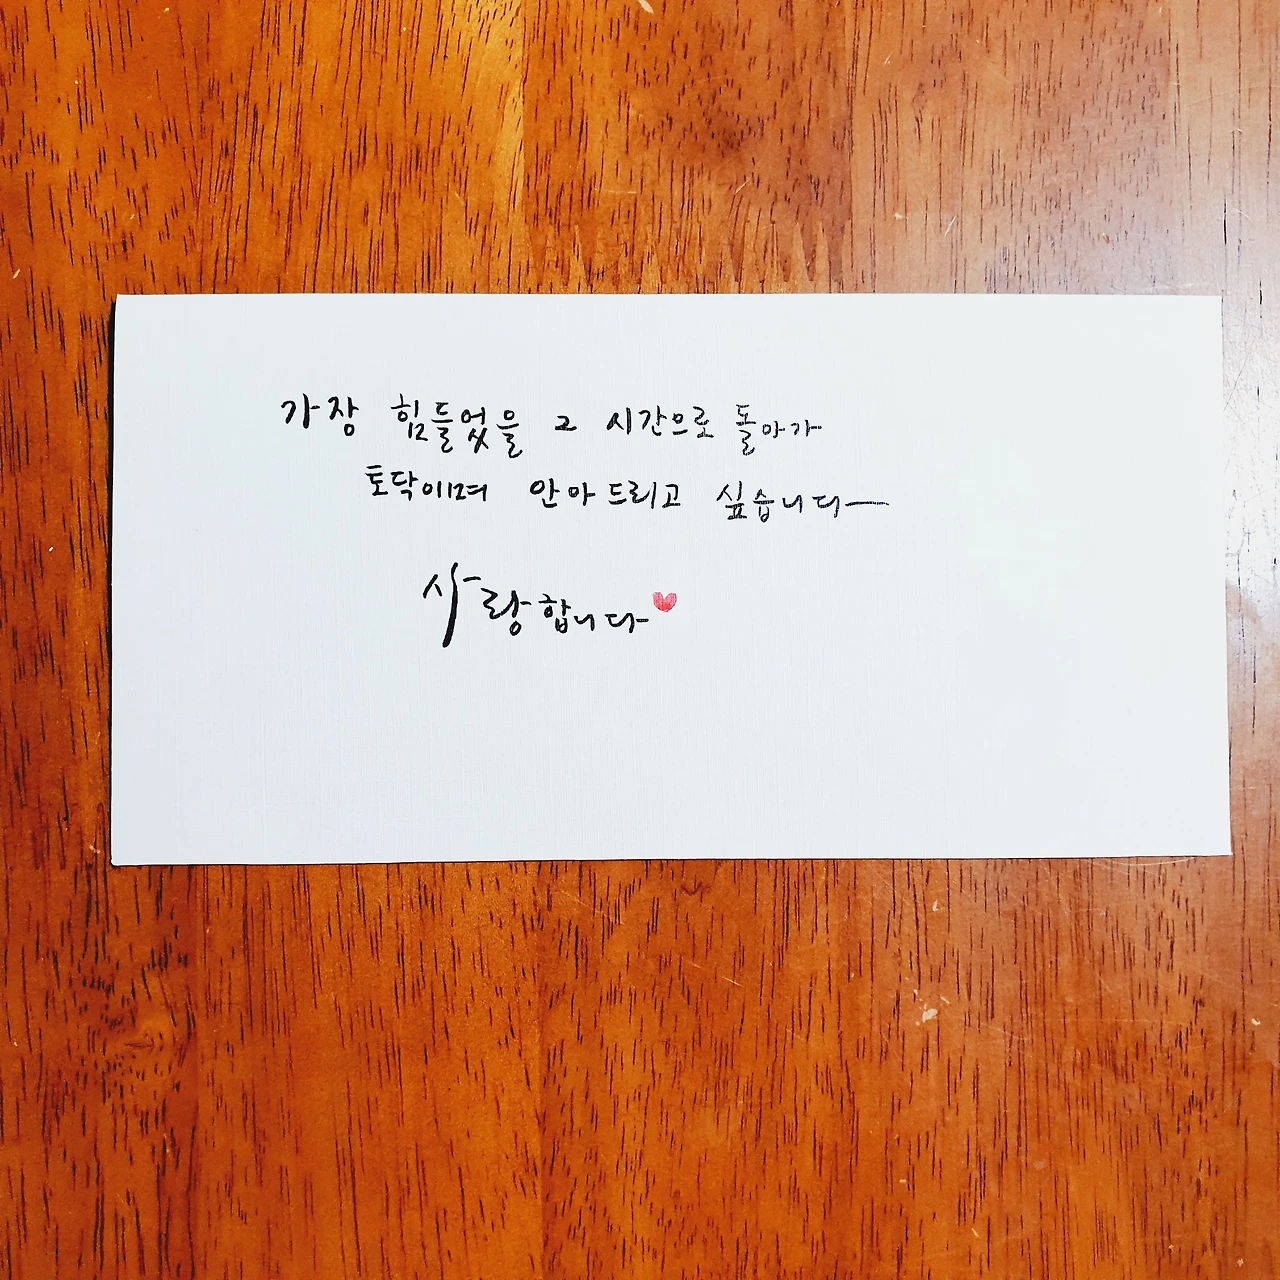 가장 힘들었을 그 시간으로 돌아가
토닥이며 안아 드리고 싶습니다
사랑합니다